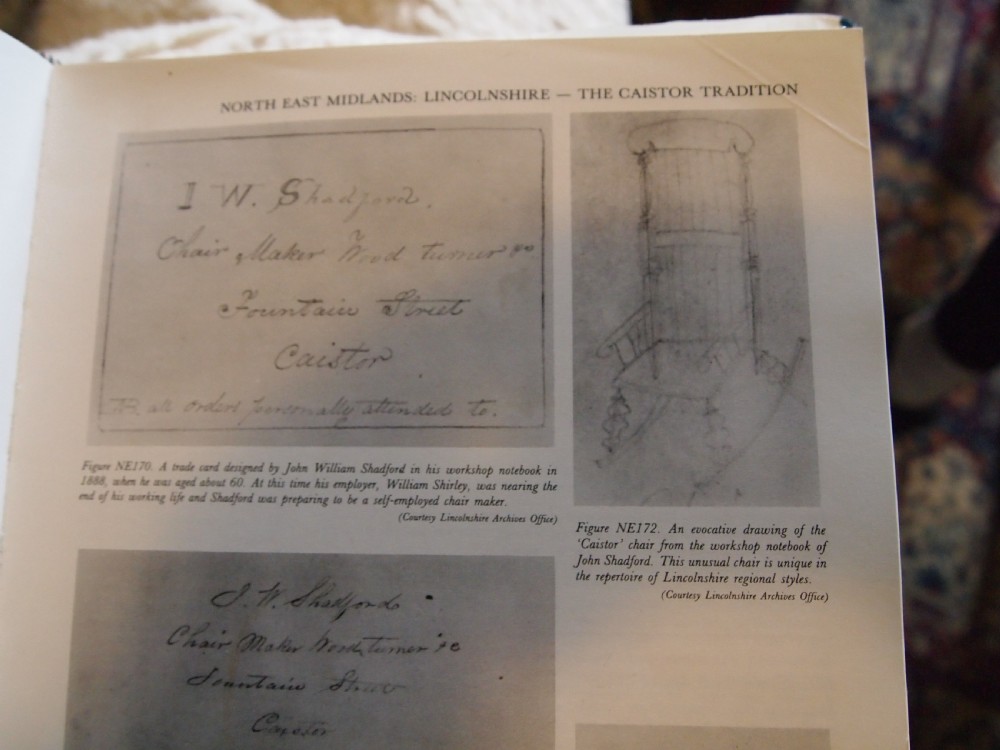 NORTH EAST MIDLANDS: LINCOLNSHIRE — THE CAISTOR TRADITION
I W. Shadford.
Chair Maker Wood turner &c
Fountain Street
Caistor
all orders personally attended to.
Figure NE170. A trade card designed by John William Shadford in his workshop notebook in
1888, when he was aged about 60. At this time his employer, William Shirley, was nearing the
end of his working life and Shadford was preparing to be a self-employed chair maker.
(Courtesy Lincolnshire Archives Office)
Figure NE172. An evocative drawing of the
'Caistor' chair from the workshop notebook of
John Shadford. This unusual chair is unique in
the repertoire of Lincolnshire regional styles.
(Courtesy Lincolnshire Archives Office)
J. W. Shadford
Chair Maker Wood turner &c
Fountain Street
Caistor